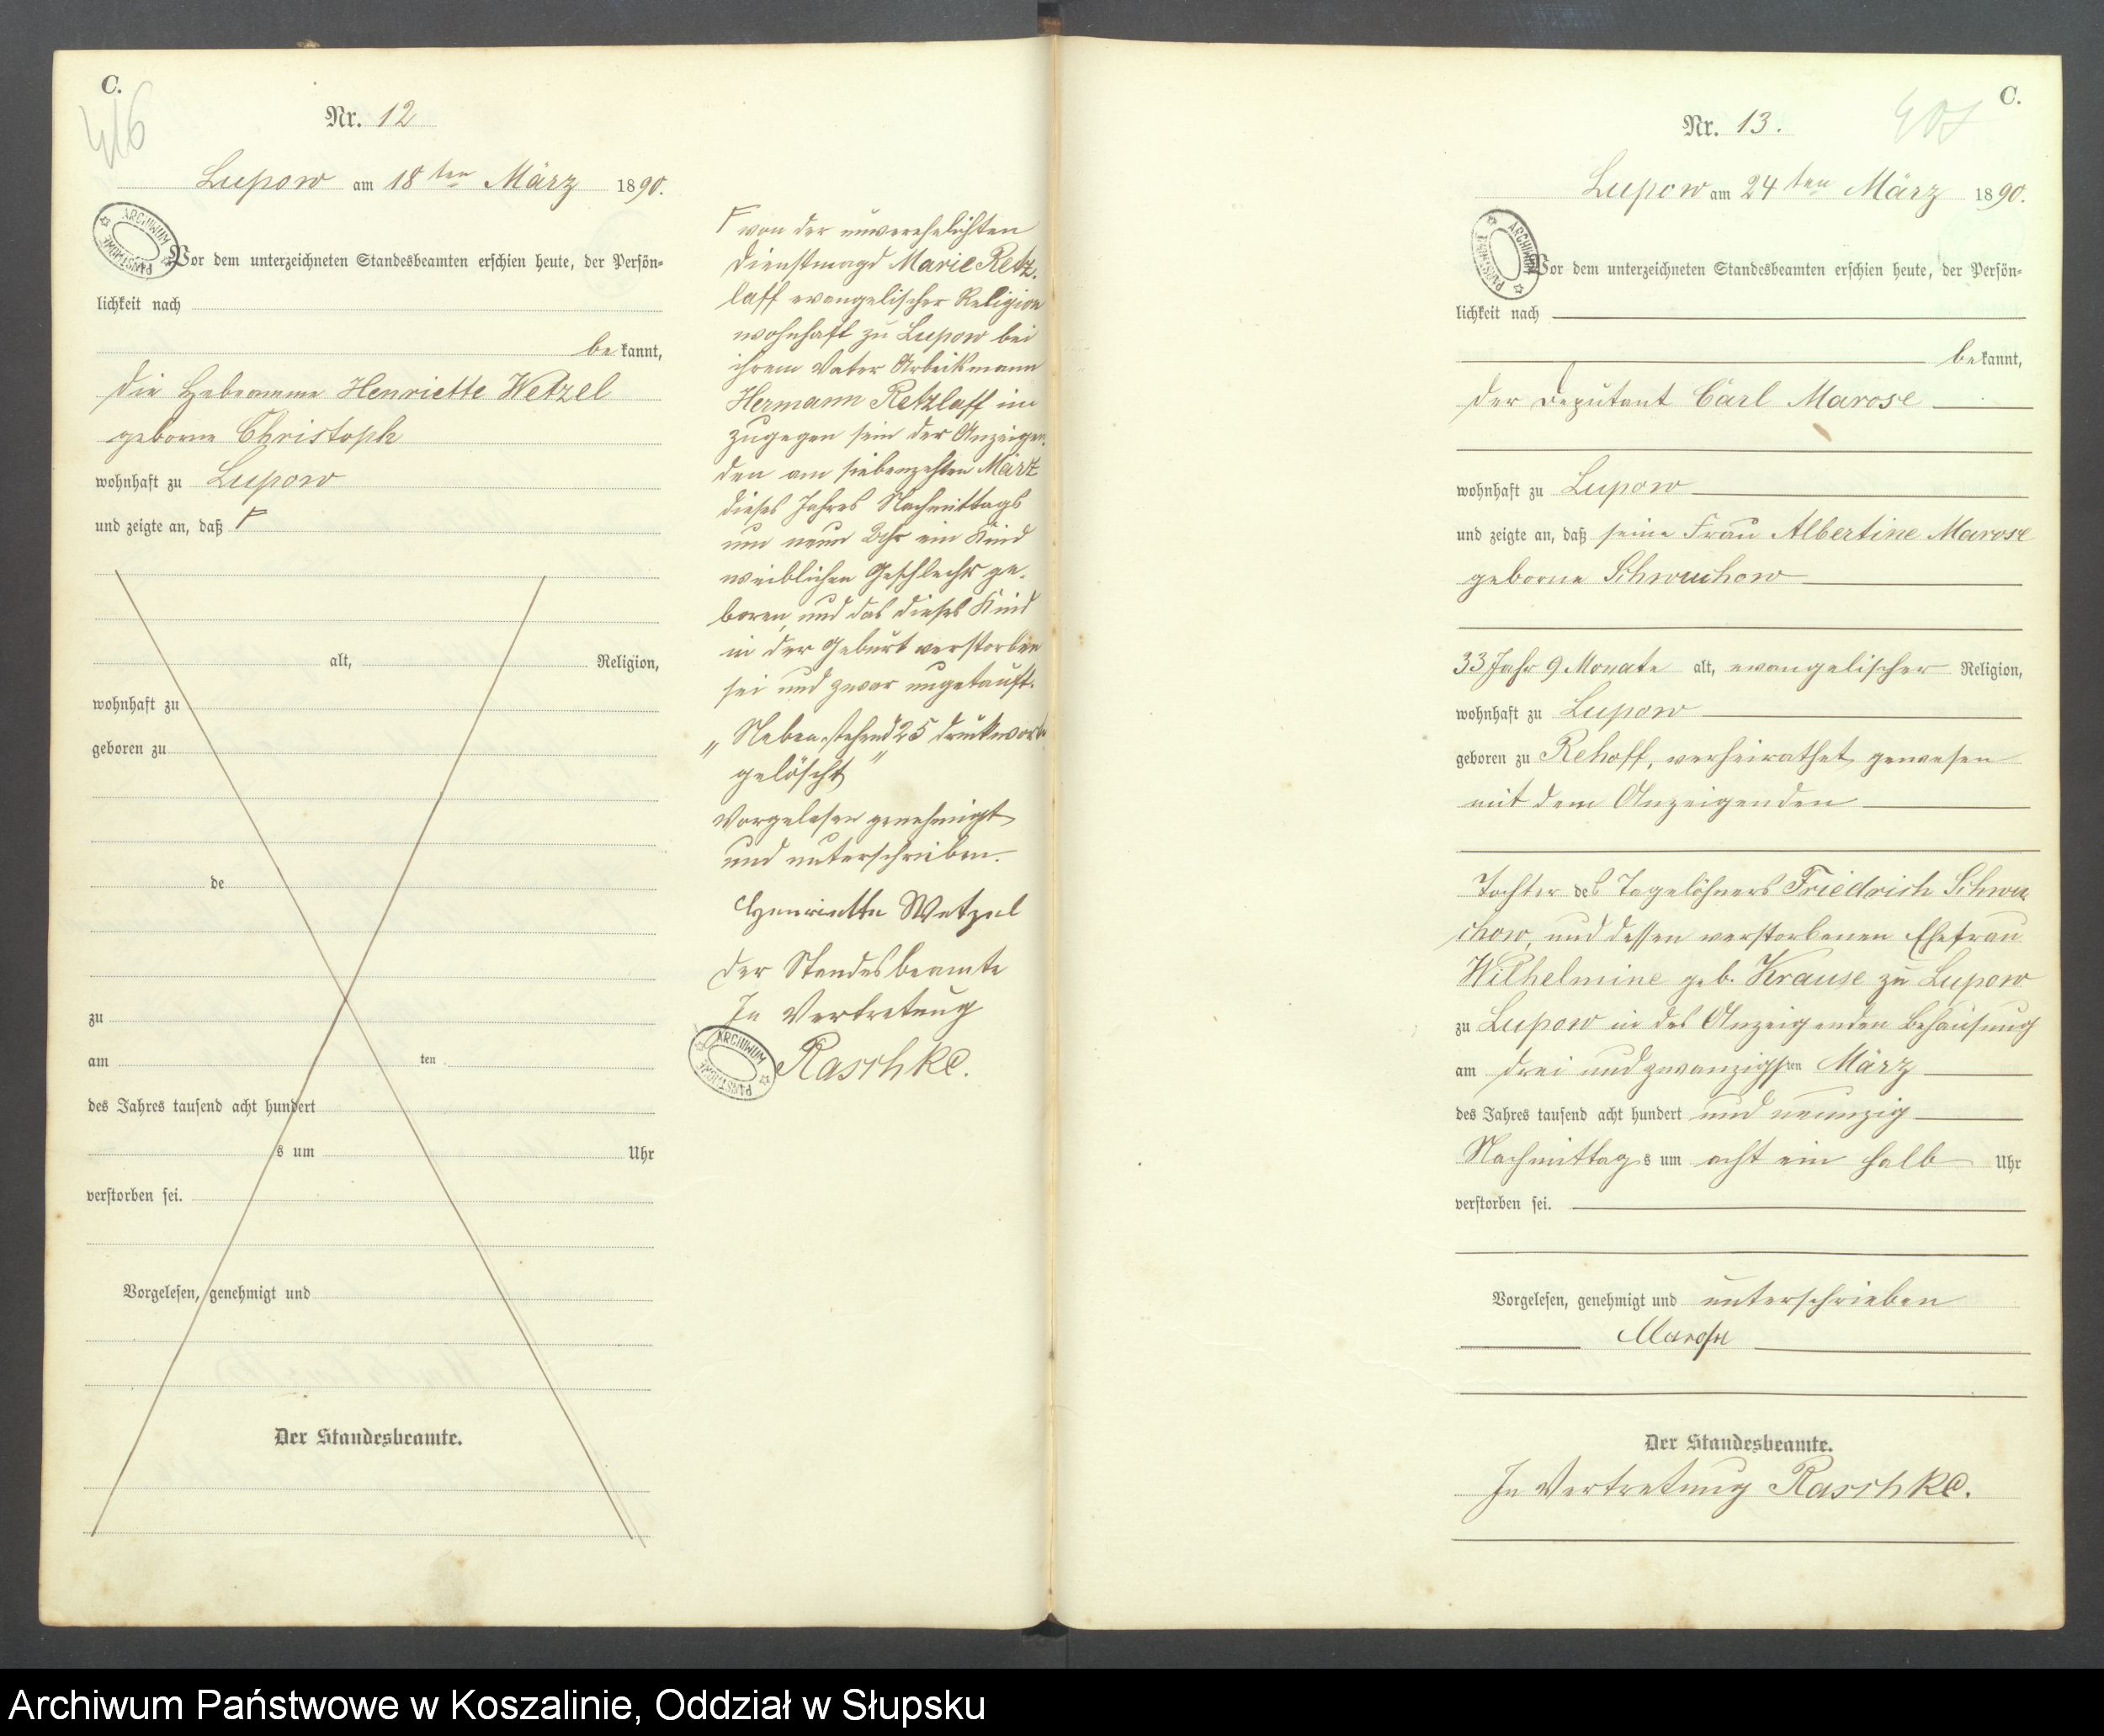 C.
416
Nr. 12
Lupow am 18ten März 1890.
Vor dem unterzeichneten Standesbeamten erschien heute, der Persön-
lichkeit nach
bekannt,
die Hebeamme Henriette Wetzel
geborne Christoph
wohnhaft zu Lupow
und zeigte an, daß
alt, Religion,
wohnhaft zu
geboren zu
de
zu
am ten
des Jahres tausend acht hundert
s um Uhr
verstorben sei.
Vorgelesen, genehmigt und
Der Standesbeamte.
von der unverehelichten
Dienstmagd Marie Retz-
laff evangelischer Religion
wohnhaft zu Lupow bei
ihrem Vater Arbeitsmann
Hermann Retzlaff im
zugegen sein der Anzeigen-
den am siebenzehten März
dieses Jahres Nachmittags
um neun Uhr ein Kind
weiblichen Geschlechts ge-
boren, und das dieses Kind
in der Geburt verstorben
sei und zwar ungetauft.
„Nebenstehend 25 Druckworte
gelöscht"
Vorgelesen genehmigt
und unterschrieben.
Henriette Wetzel
Der Standesbeamte
In Vertretung
Raschke.
ARCHIWUM PAŃSTWOWE
C.
Nr. 13.
Lupow am 24ten März 1890.
ARCHIWUM PAŃSTWOWE
Vor dem unterzeichneten Standesbeamten erschien heute, der Persön-
lichkeit nach
bekannt,
der Deputant Carl Marose
wohnhaft zu Lupow
und zeigte an, daß seine Frau Albertine Marose
geborne Schwuchow
33 Jahr 9 Monate alt, evangelischer Religion,
wohnhaft zu Lupow
geboren zu Rehoff, verheirathet gewesen
mit dem Anzeigenden
Tochter des Tagelöhners Friedrich Schwu-
chow, und dessen verstorbenen Ehefrau
Wilhelmine geb. Krause zu Lupow
zu Lupow in des Anzeigenden Behausung
am drei und zwanzigsten März
des Jahres tausend acht hundert und neunzig
Nachmittags um acht ein halb Uhr
verstorben sei.
Vorgelesen, genehmigt und unterschrieben
Marose
Der Standesbeamte.
In Vertretung Raschke.
Archiwum Państwowe w Koszalinie, Oddział w Słupsku